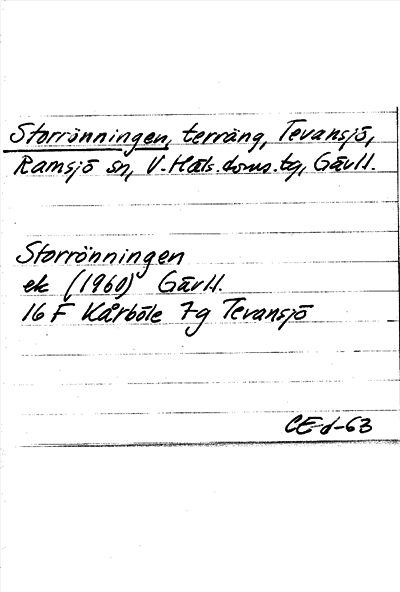 Storrönningen, terräng, Tevansjö,
Ramsjö sn, V. Häls. doms. tg, Gävl l.
Storrönningen
ek (1960) Gävl l.
16 F Kårböle 7g Tevansjö
CE-d-63